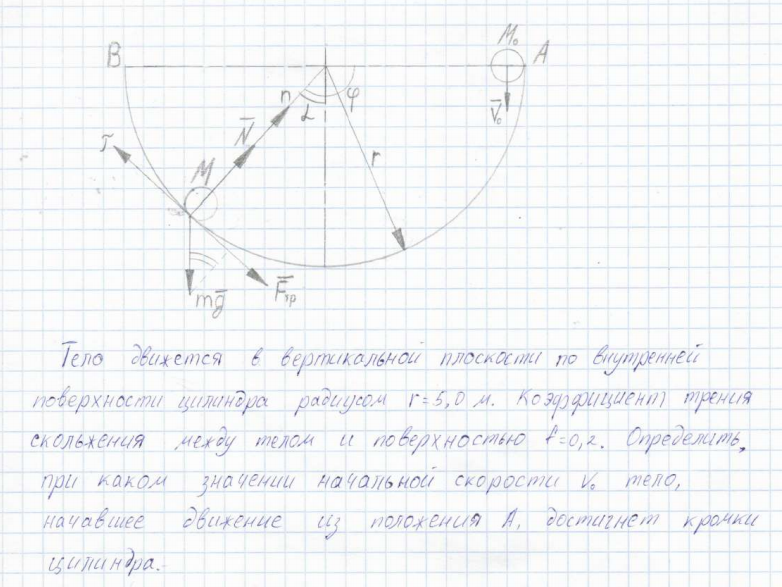 B
M₀
A
φ
n
α
V̄₀
N̄
τ
r
M
mḡ
F̄тр
Тело движется в вертикальной плоскости по внутренней
поверхности цилиндра радиусом r=5,0 м. Коэффициент трения
скольжения между телом и поверхностью f=0,2. Определить,
при каком значении начальной скорости v₀ тело,
начавшее движение из положения А, достигнет кромки
цилиндра.